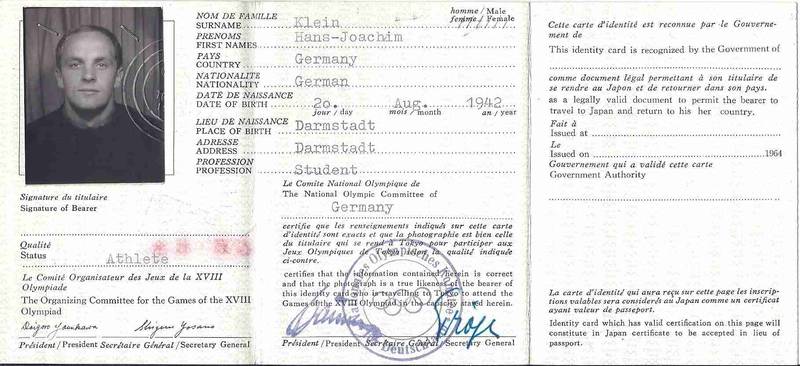 Signature du titulaire
Signature of Bearer
Qualité
Status
Athlete
Le Comité Organisateur des Jeux de la XVIII
Olympiade
The Organizing Committee for the Games of the XVIII
Olympiad
Président / President Secrétaire Général / Secretary General
NOM DE FAMILLE
SURNAME Klein
homme / Male
femme / Female
PRENOMS
FIRST NAMES Hans-Joachim
PAYS
COUNTRY Germany
NATIONALITE
NATIONALITY German
DATE DE NAISSANCE
DATE OF BIRTH 20. Aug. 1942
jour / day mois / month an / year
LIEU DE NAISSANCE
PLACE OF BIRTH Darmstadt
ADRESSE
ADDRESS Darmstadt
PROFESSION
PROFESSION Student
Le Comite National Olympique de
The National Olympic Committee of
Germany
certifie que les renseignements indiqués sur cette carte
d'identité sont exacts et que la photographie est bien celle
du titulaire qui se rend à Tokyo pour participer aux
Jeux Olympiques de Tokyo selon la qualité indiquée
ci-contre.
certifies that the information contained herein is correct
and that the photograph is a true likeness of the bearer of
this identity card who is travelling to Tokyo to attend the
Games of the XVIII Olympiad in the capacity stated herein.
Président / President Secrétaire Général / Secretary General
Cette carte d'identité est reconnue par le Gouverne-
ment de
This identity card is recognized by the Government of
comme document légal permettant à son titulaire de
se rendre au Japon et de retourner dans son pays.
as a legally valid document to permit the bearer to
travel to Japan and return to his her country.
Fait à
Issued at
Le
Issued on 1964
Gouvernement qui a validé cette carte
Government Authority
La carte d'identité qui aura reçu sur cette page les inscrip-
tions valables sera considerés au Japon comme un certificat
ayant valeur de passeport.
Identity card which has valid certification on this page will
constitute in Japan certificate to be accepted in lieu of
passport.